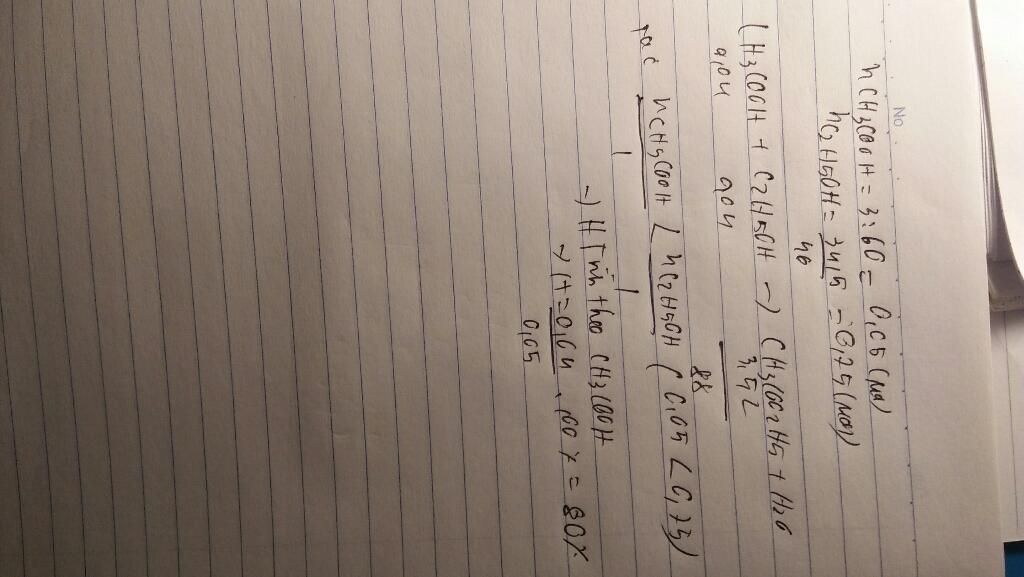 No
nCH3COOH = 3:60 = 0,05 (mol)
nC2H5OH = 34,5 = 0,75 (mol)
46
CH3COOH + C2H5OH -> CH3COOC2H5 + H2O
0,04 0,04 3,52
88
nCH3COOH < nC2H5OH (0,05 < 0,75)
1 1
-> H tính theo CH3COOH
-> H = 0,04 . 100% = 80%
0,05